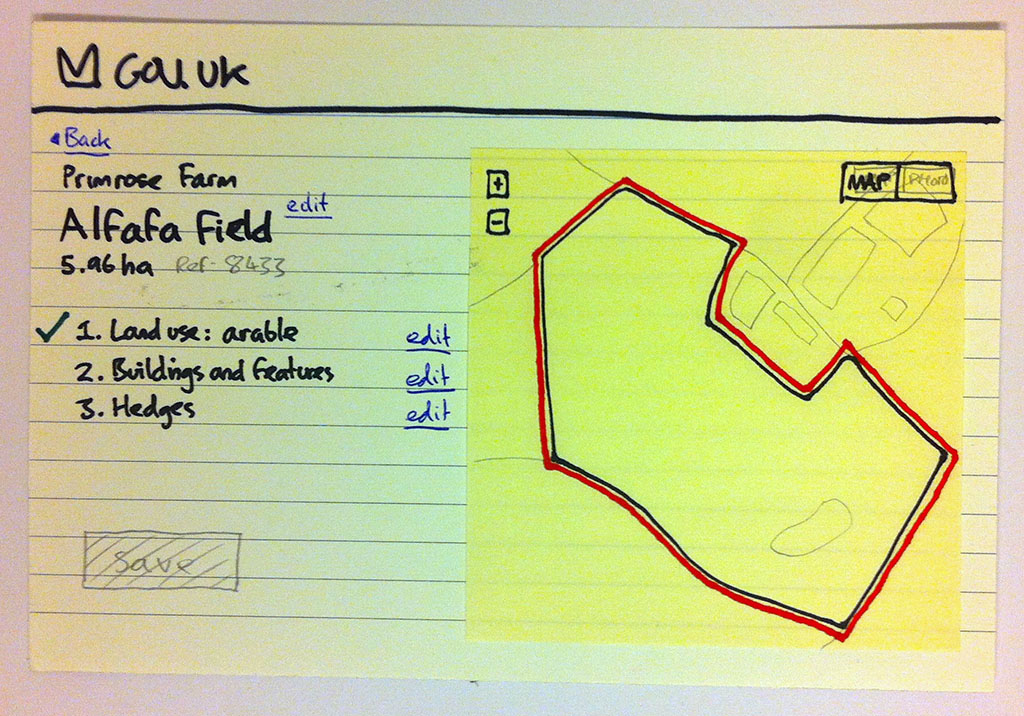 GOV.UK
Back
Primrose Farm
Alfafa Field edit
5.96 ha Ref- 8433
1. Land use: arable edit
2. Buildings and features edit
3. Hedges edit
save
+
-
MAP